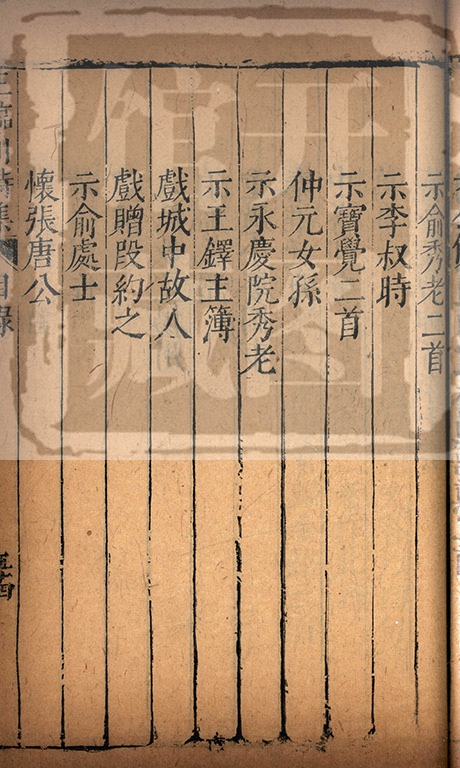 示俞秀老二首
示李叔時
示寶覺二首
仲元女孫
示永慶院秀老
示王鐸主簿
戲城中故人
戲贈段約之
示俞處士
懷張唐公
目錄